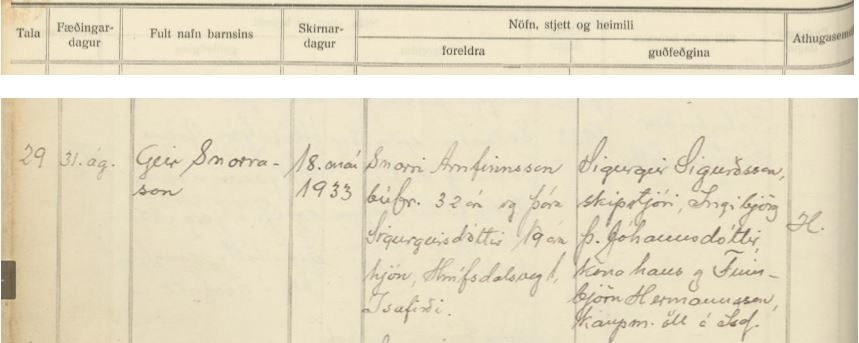 Tala
Fæðingar-
dagur
Fult nafn barnsins
Skírnar-
dagur
Nöfn, stjett og heimili
foreldra
guðfeðgina
Athugasemd
29
31. ág.
Geir Snorra-
son
18. maí
1933
Snorri Arnfinnsson
búfr. 32 ára og Þóra
Sigurgeirsdóttir, 19 ára
hjón, Hnífsdalsveg 1,
Ísafirði.
Sigurgeir Sigurðsson,
skipstjóri, Ingibjörg
Þ. Jóhannsdóttir,
kona hans og Finn-
björn Hermannsson,
kaupm. öll á Ísaf.
H.